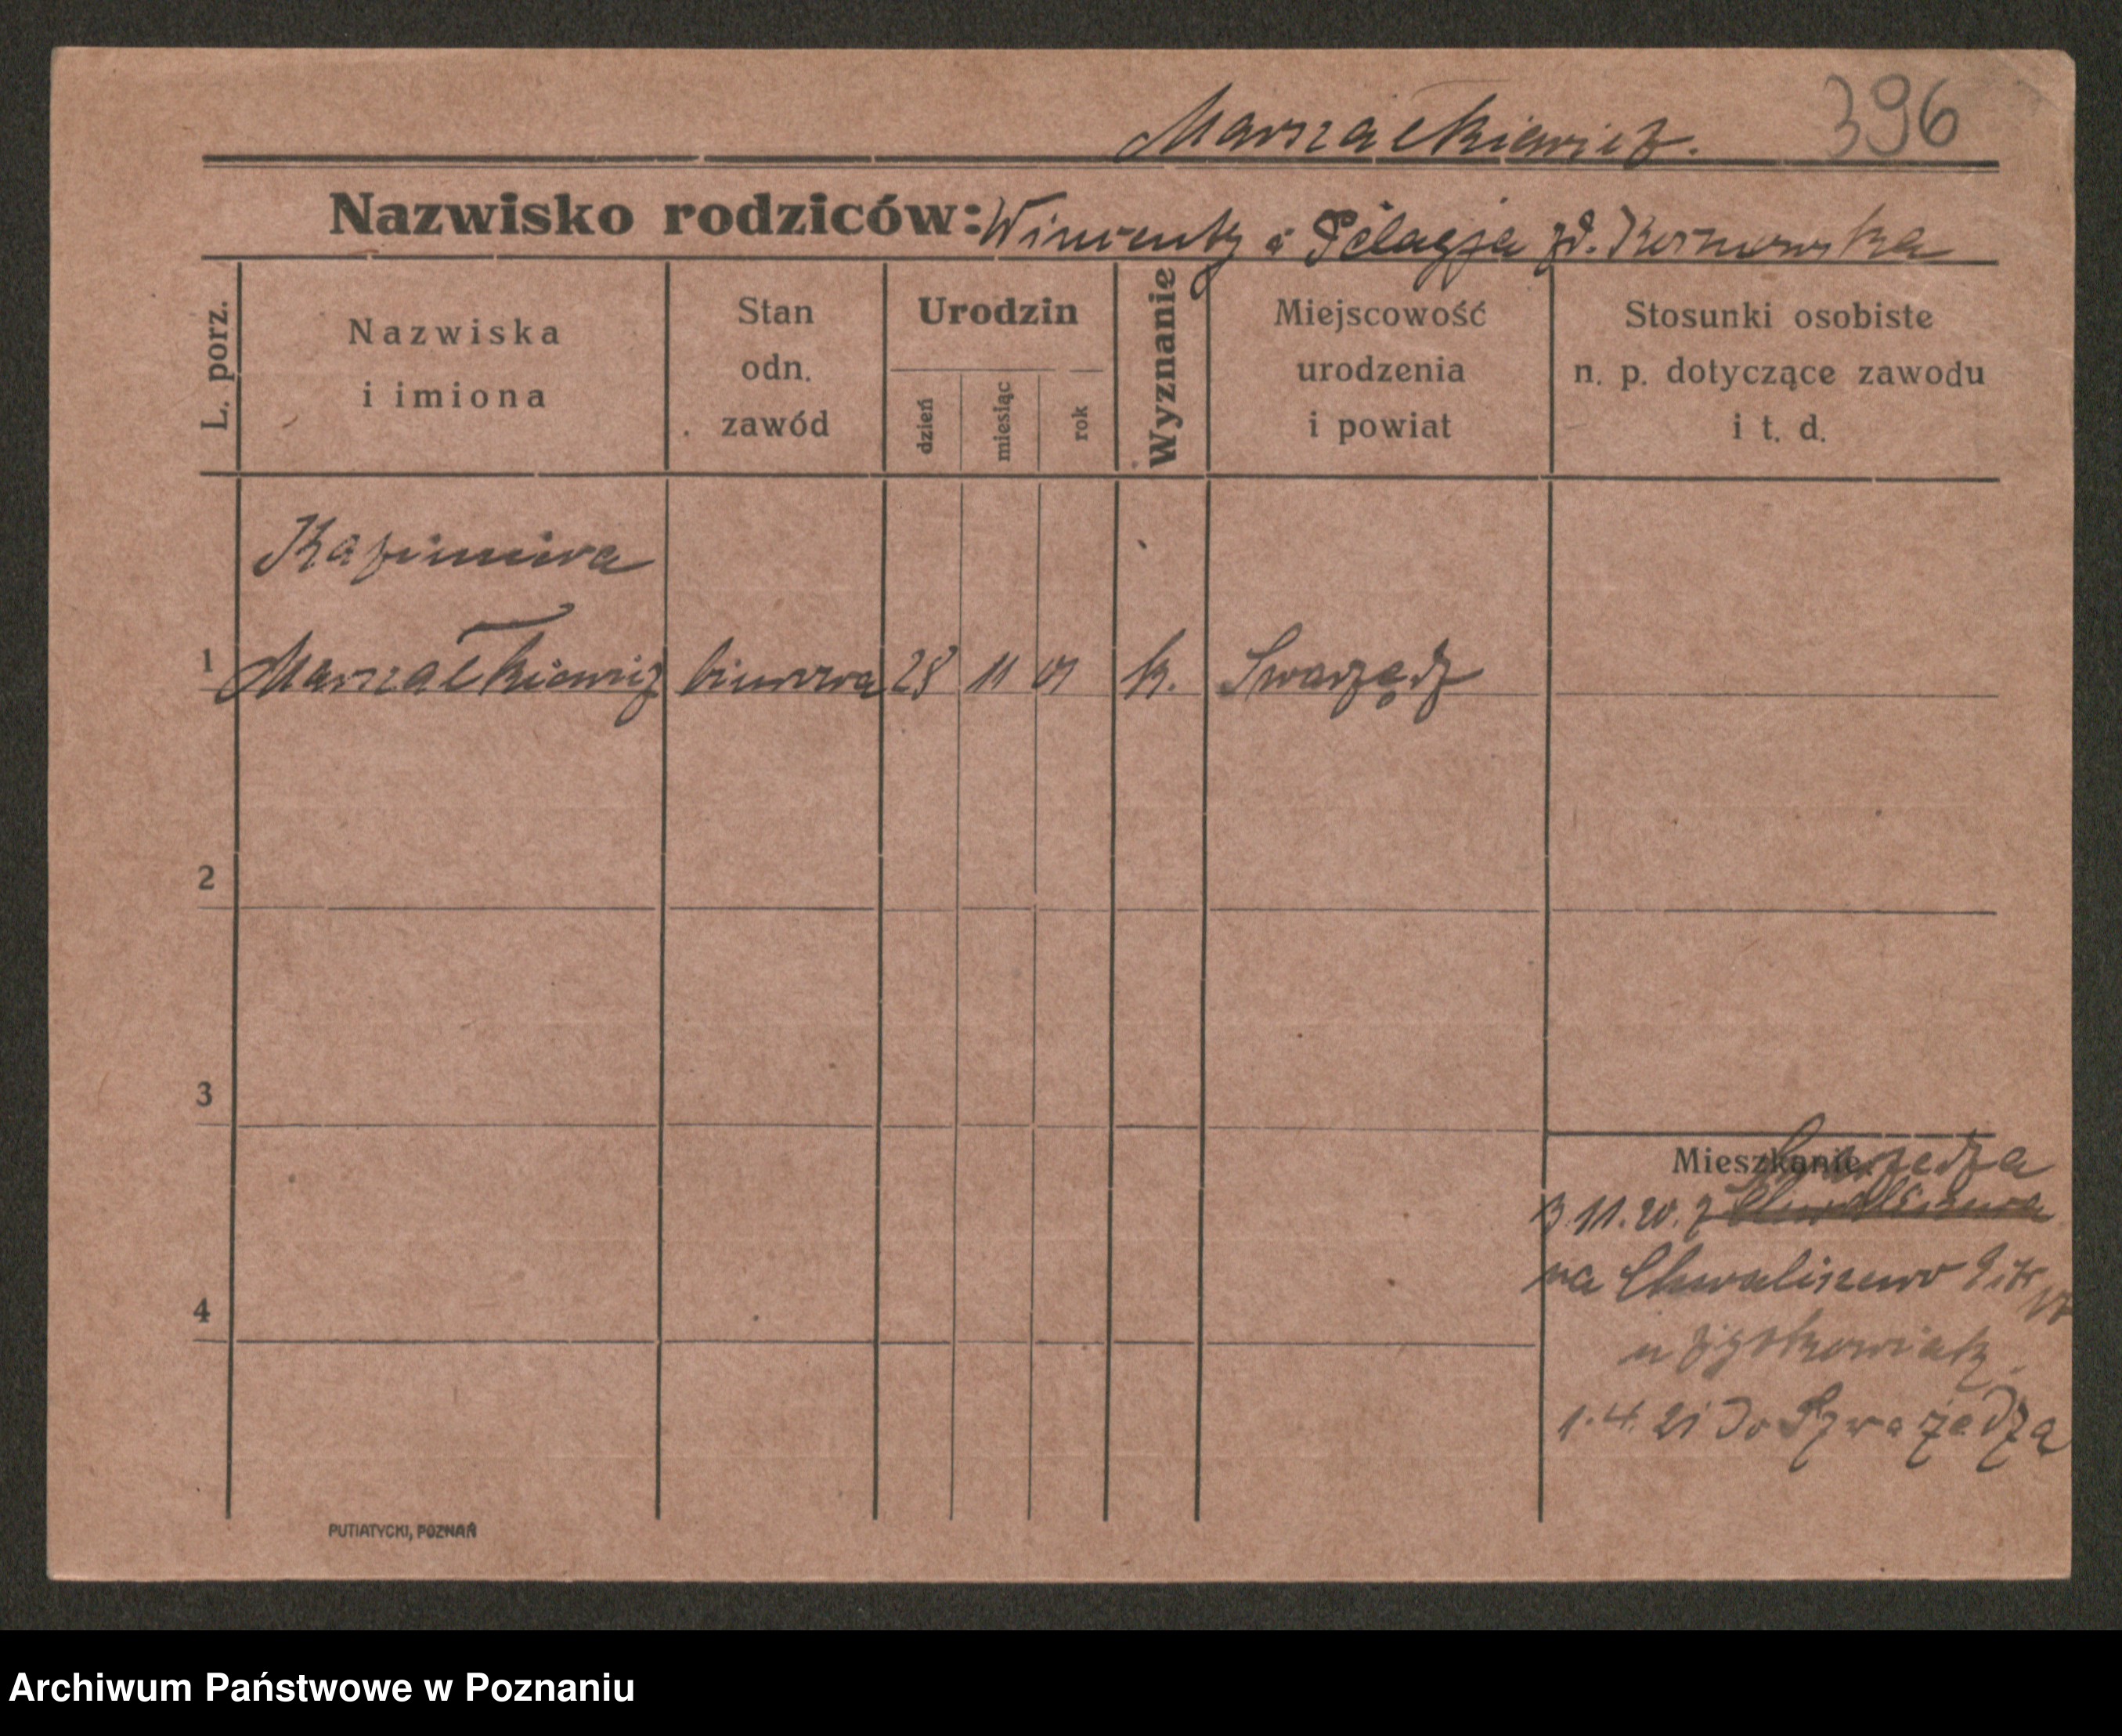 Marszałkiewicz. 396
Nazwisko rodziców: Wincenty i Pelagja zd.
L. porz.
Nazwiska
i imiona
Stan
odn.
zawód
Urodzin
dzień
miesiąc
rok
Wyznanie
Miejscowość
urodzenia
i powiat
Stosunki osobiste
n. p. dotyczące zawodu
i t. d.
Kazimiera
1 Marszałkiewicz biurowa 28 11 01 k. Swarzędz
2
3
4
Mieszkanie
Swarzędza
3.11.20. z
na Chwaliszewo
u
1.4.21 do Szwarzędza
PUTIATYCKI, POZNAŃ
Archiwum Państwowe w Poznaniu